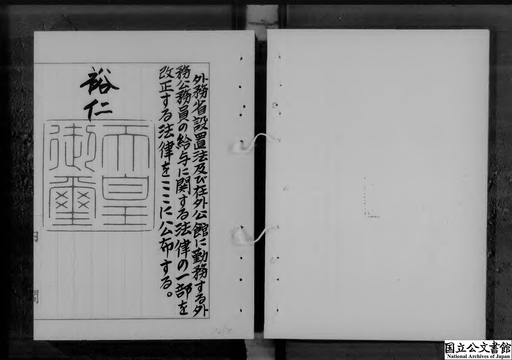 外務省設置法及び在外公館に勤務する外
務公務員の給与に関する法律の一部を
改正する法律をここに公布する。
裕仁
天皇
御璽
国立公文書館
National Archives of Japan